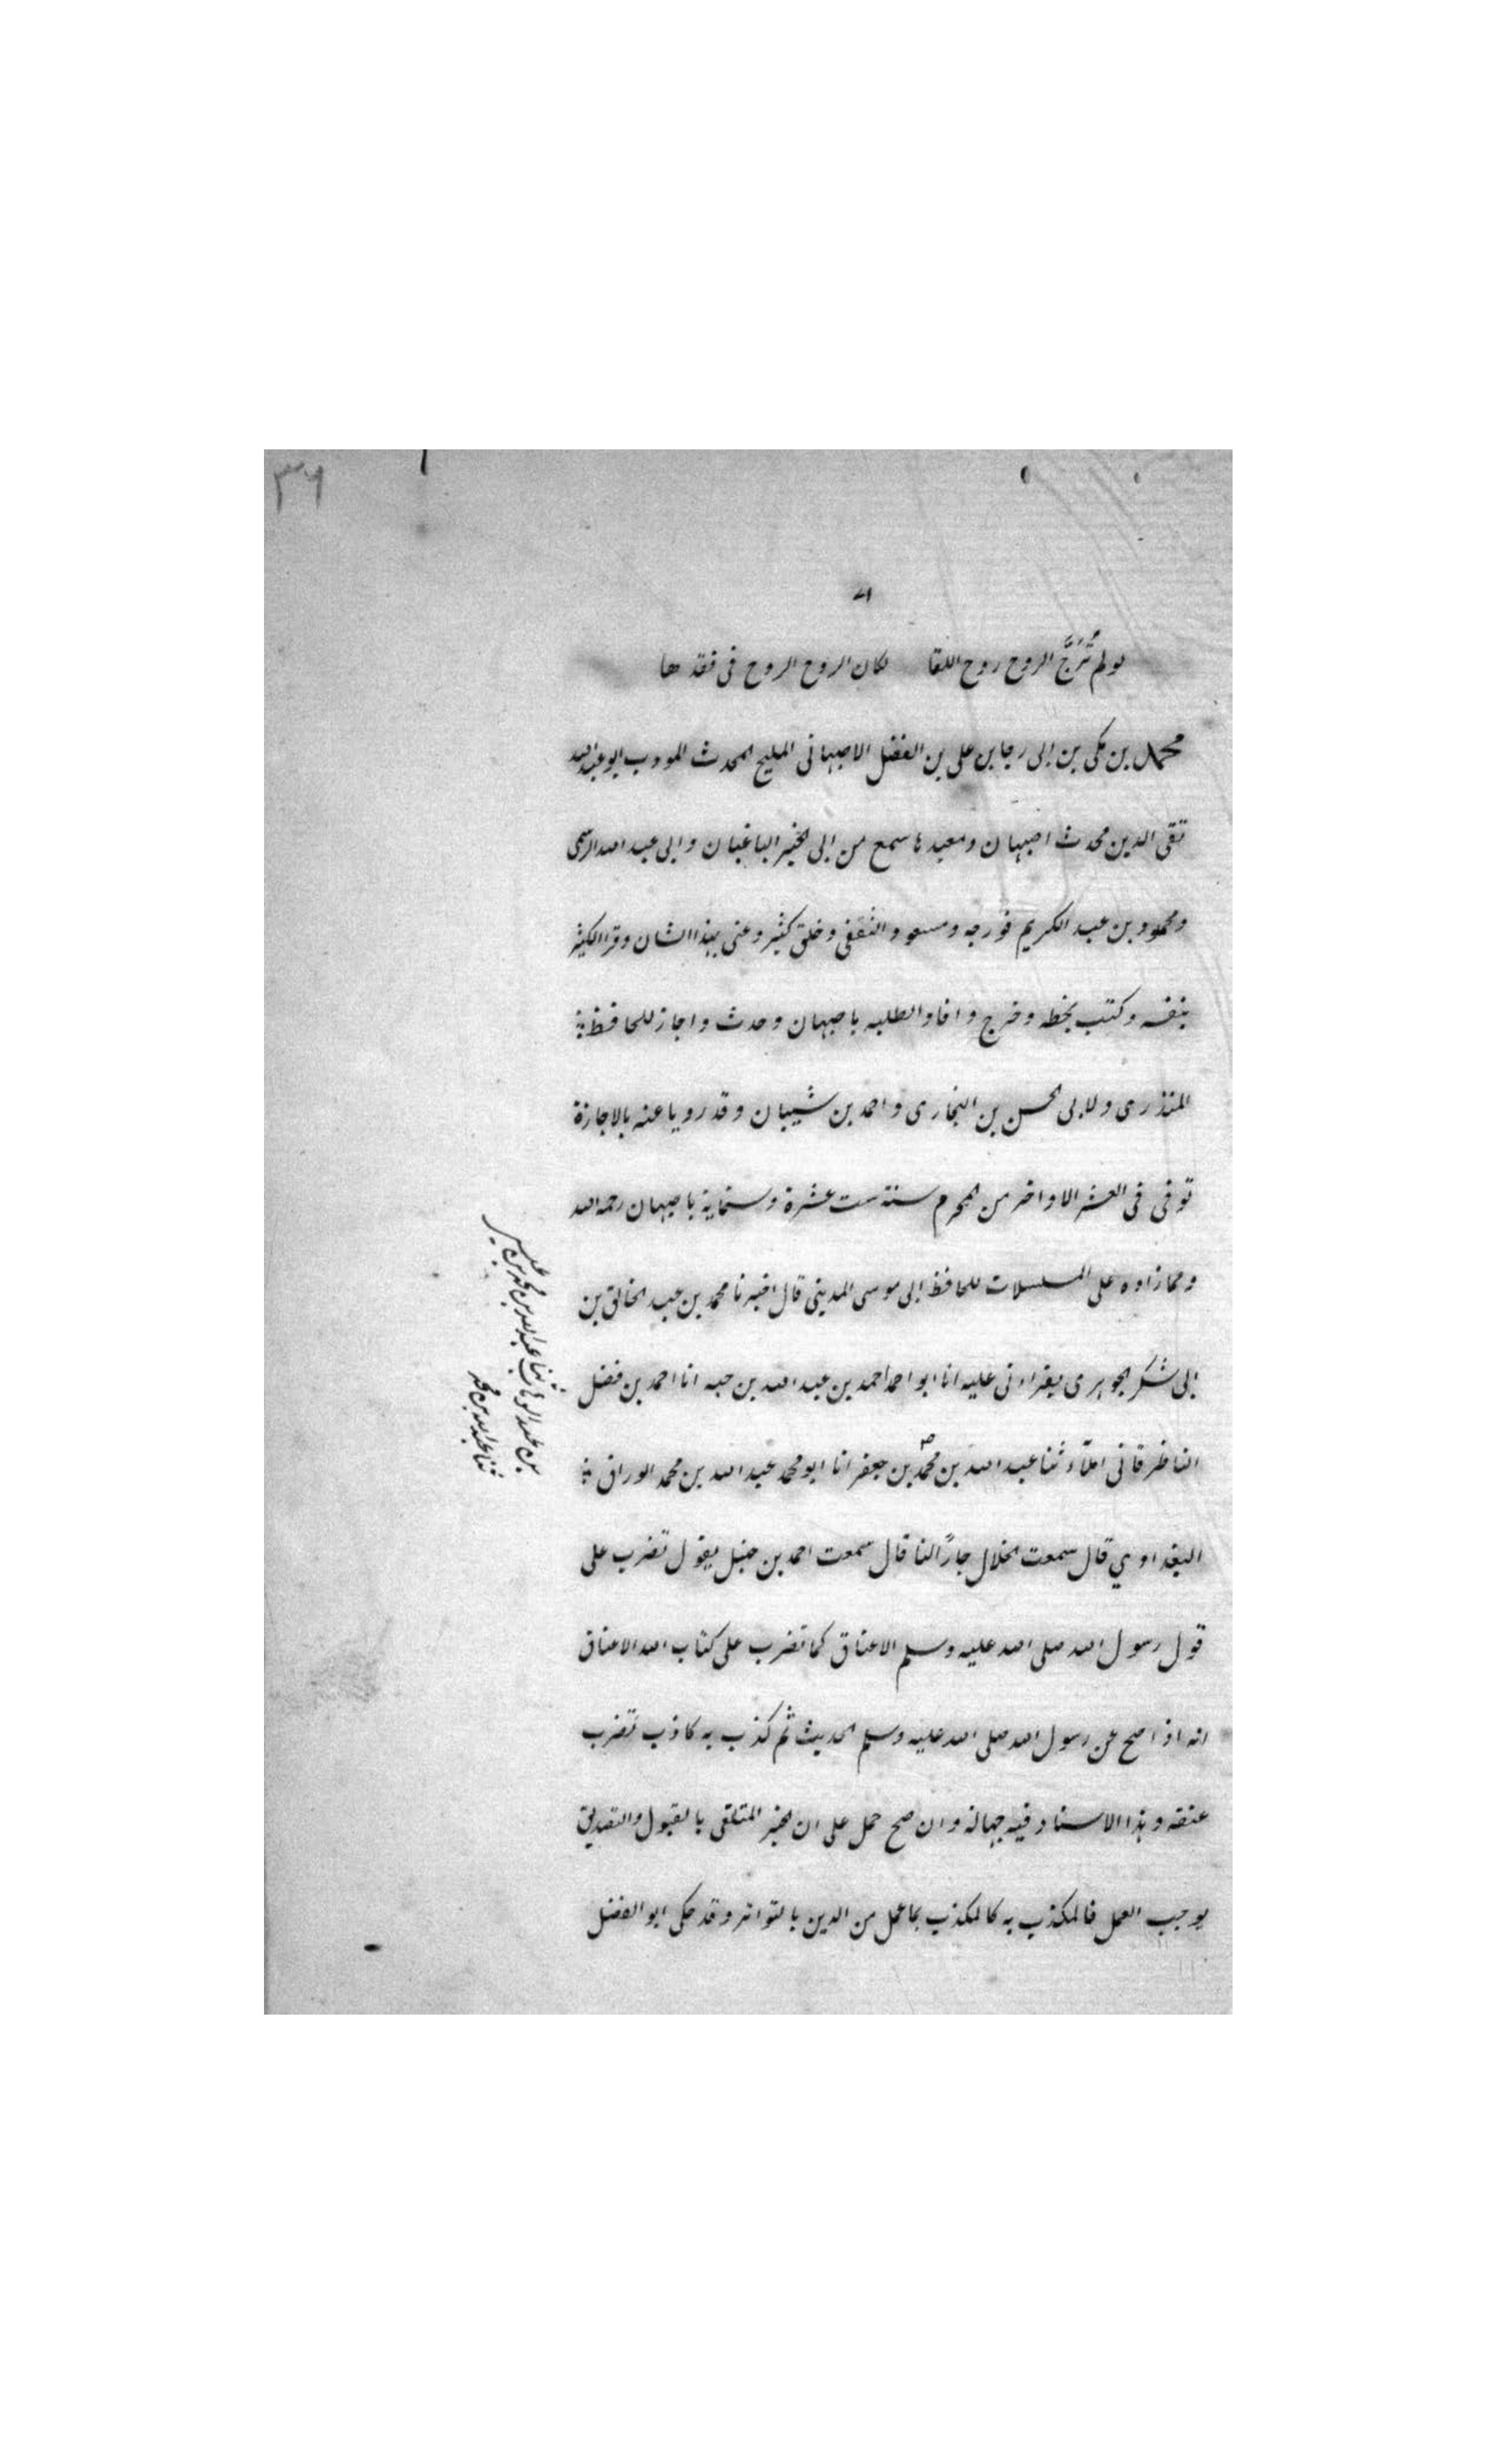 ٣٦
٧١
لو لم تُرَجَّ الروح روح اللقا لكان الروح الروح فى فقدها
محمد بن مكى بن ابى رجا بن على بن الفضل الاصبهانى المليحى المحدث المودب ابو عبد الله
تقى الدين محدث اصبهان ومعيدها سمع من ابى الخير الباغبان وابى عبد الله الرستمى
ومحمود بن عبد الكريم فورجه ومسعود الثقفى وخلق كثير وعنى بهذا الشان وقرا الكثير
بنفسه وكتب بخطه وخرج وافاد الطلبه باصبهان وحدث واجاز للحافظ
المنذرى ولابى الحسن بن البخارى واحمد بن شيبان وقد رويا عنه بالاجازة
توفى فى العشر الاواخر من المحرم سنة ست عشرة وستماية باصبهان رحمه الله
ومما زاده على المسلسلات للحافظ ابى موسى المدينى قال اخبرنا محمد بن عبد الخالق بن
ابى شكر الجوهرى بقراءتى عليه انا ابو احمد احمد بن عبد الله بن حبه انا احمد بن فضل
الناطرقانى املاء ثنا عبد الله بن محمد بن جعفر انا ابو محمد عبد الله بن محمد الوراق
البغدادي قال سمعت الخلال جارًا لنا قال سمعت احمد بن حنبل يقول تضرب على
قول رسول الله صلى الله عليه وسلم الاعناق كما تضرب على كتاب الله الاعناق
انه اذا صح عن رسول الله صلى الله عليه وسلم الحديث ثم كذب به كاذب تضرب
عنقه وهذا الاسناد فيه جهالة وان صح حمل على ان الخبر المتلقى بالقبول والتصديق
يوجب العمل فالمكذب به كالمكذب بما عمل من الدين بالتواتر وقد حكى ابو الفضل
بن عبد الوهاب ثنا عبد الله بن محمد بن
ثنا عبد الله بن محمد